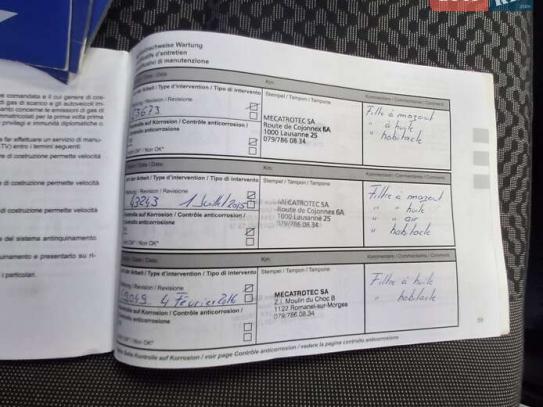 comandata e il cui genere di co-
di gas di scarico e gli autoveicoli im-
quanto concerne le emissioni di gas di
immatricolati per la prima volta prima
privilegi e immunità diplomatiche o
far effettuare un servizio di manu-
entro i termini seguenti:
di costruzione permette velocità
di costruzione permette velocità
di costruzione permette velocità
del sistema antinquinamento
e presentarlo su ri-
i particolari.
nachweise Wartung
d'entretien
di manutenzione
Date / Data: Km:
der Arbeit / Type d'intervention / Tipo di intervento Stempel / Tampon / Tampone Kommentare / Commentaires / Commenti
/ Révision / Revisione
3673
auf Korrosion / Contrôle anticorrosion /
anticorrosione
OK* / Non OK*
MECATROTEC SA
Route de Cojonnex 6A
1000 Lausanne 25
079/786.08.34
Filtre à mazout
" à huile
" habitacle
Date / Data: Km:
der Arbeit / Type d'intervention / Tipo di intervento Stempel / Tampon / Tampone Kommentare / Commentaires / Commenti
/ Révision / Revisione
43243 1 Juillet 2015
Kontrolle auf Korrosion / Contrôle anticorrosion /
anticorrosione
OK* / Non OK*
MECATROTEC SA
Route de Cojonnex 6A
1000 Lausanne 25
079/786.08.34
Filtre à mazout
" à huile
" à air
" habitacle
Date / Data: Km:
der Arbeit / Type d'intervention / Tipo di intervento Stempel / Tampon / Tampone Kommentare / Commentaires / Commenti
/ Révision / Revisione
4 Février 2016
auf Korrosion / Contrôle anticorrosion /
anticorrosione
OK* / Non OK*
MECATROTEC SA
Z.I. Moulin du Choc B
1122 Romanel-sur-Morges
079/786.08.34
Filtre à huile
" habitacle
Siehe Seite Kontrolle auf Korrosion / voir page Contrôle anticorrosion / vedere la pagina controllo anticorrosione